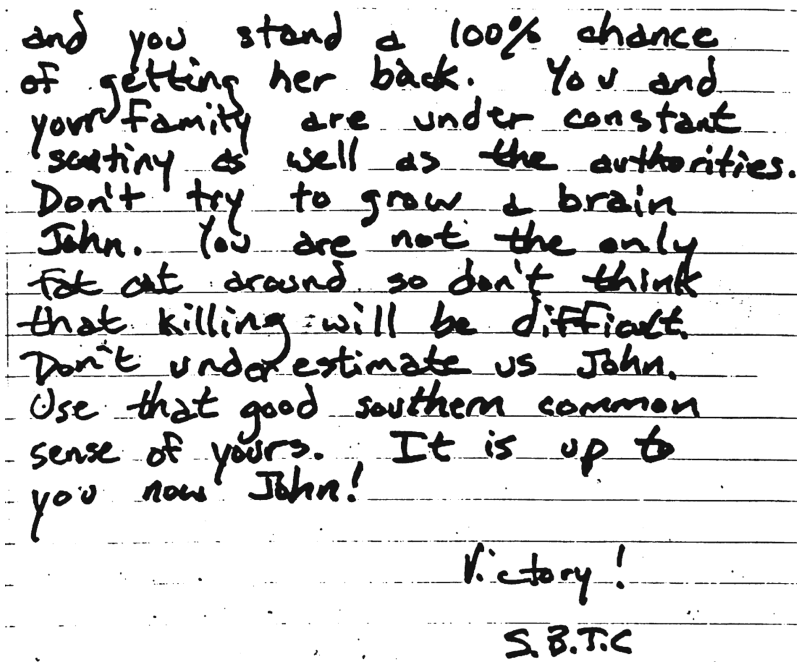 and you stand a 100% chance
of getting her back. You and
your family are under constant
scutiny as well as the authorities.
Don't try to grow a brain
John. You are not the only
fat cat around so don't think
that killing will be difficult.
Don't underestimate us John.
Use that good southern common
sense of yours. It is up to
you now John!
Victory!
S.B.T.C